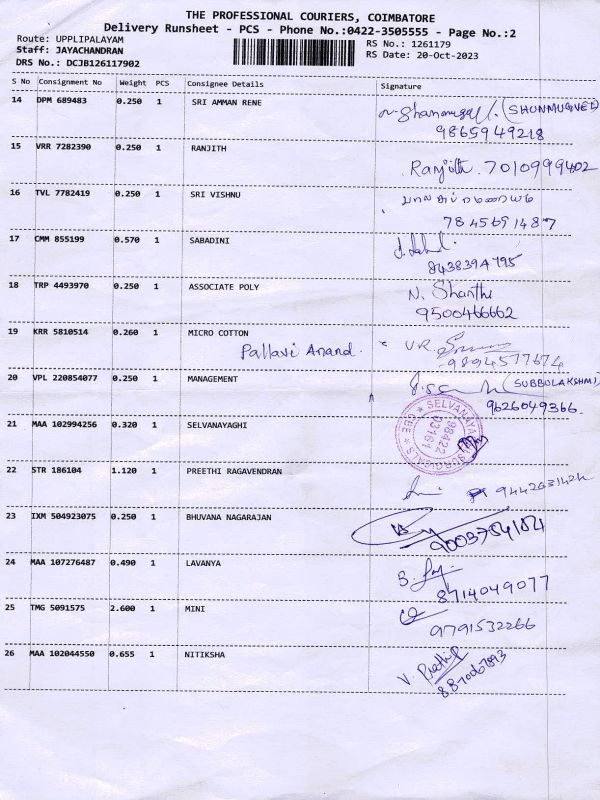 THE PROFESSIONAL COURIERS, COIMBATORE
Delivery Runsheet - PCS - Phone No.:0422-3505555 - Page No.:2
Route: UPPLIPALAYAM
RS No.: 1261179
Staff: JAYACHANDRAN
RS Date: 20-Oct-2023
DRS No.: DCJB126117902
S No Consignment No Weight PCS Consignee Details Signature
14 DPM 689483 0.250 1 SRI AMMAN RENE (SHUNMUGVEL)
9865949218
15 VRR 7282390 0.250 1 RANJITH Ranjith 7010999402
16 TVL 7782419 0.250 1 SRI VISHNU
7845691487
17 CMM 855199 0.570 1 SABADINI
8438394795
18 TRP 4493970 0.250 1 ASSOCIATE POLY N. Shanthi
9500466662
19 KRR 5810514 0.260 1 MICRO COTTON V.R.
Pallavi Anand 9894577674
20 VPL 220854077 0.250 1 MANAGEMENT (SUBBULAKSHMI)
9626049366
21 MAA 102994256 0.320 1 SELVANAYAGHI
98422
03161
22 STR 186104 1.120 1 PREETHI RAGAVENDRAN
23 IXM 504923075 0.250 1 BHUVANA NAGARAJAN
24 MAA 107276487 0.490 1 LAVANYA
8714049077
25 TMG 5091575 2.600 1 MINI
9791532266
26 MAA 102044550 0.655 1 NITIKSHA V. Preethi